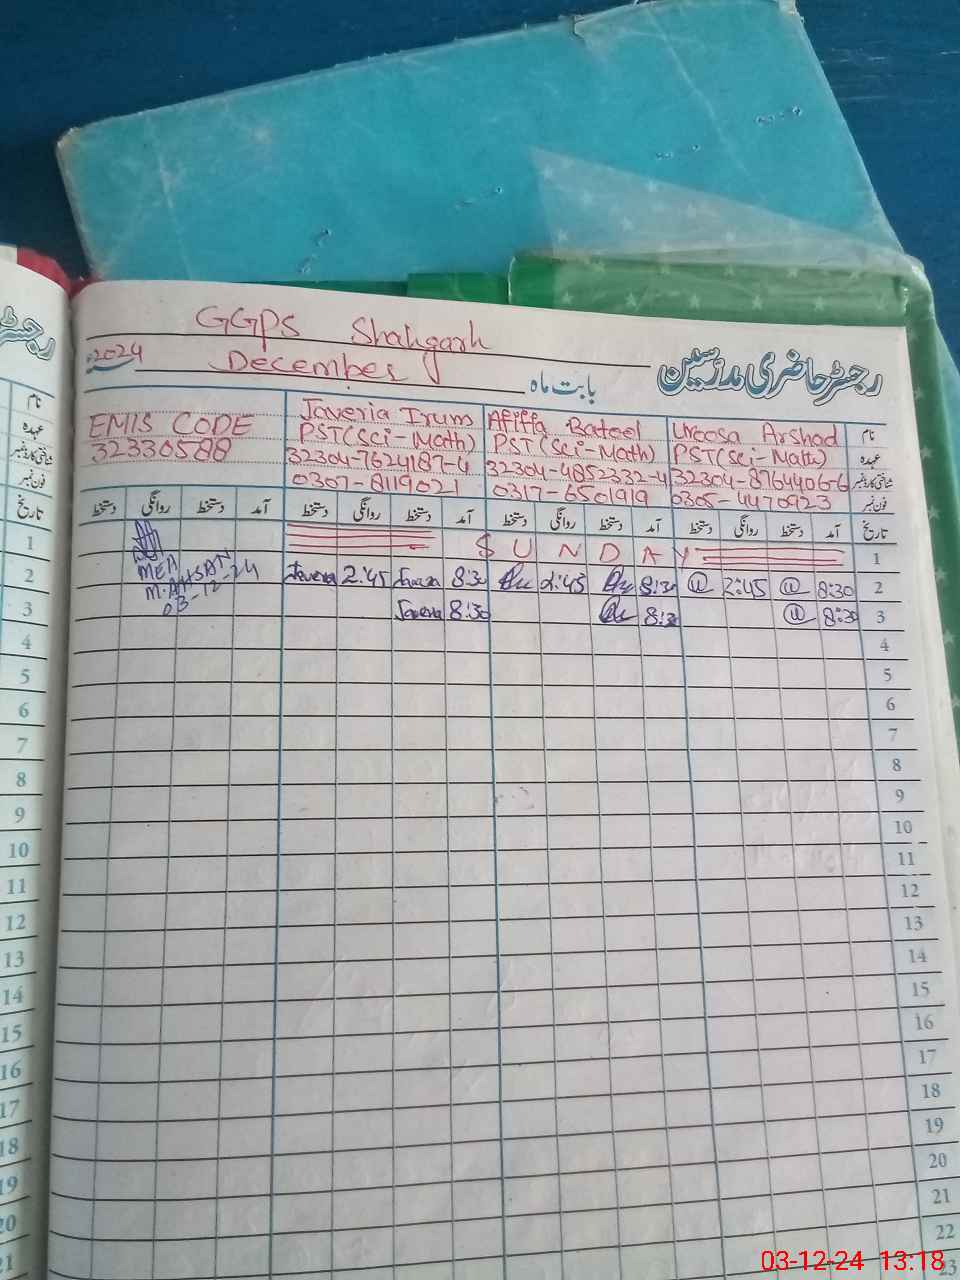 GGPS Shahgarh
رجسٹر حاضری مدرسین
بابت ماہ December 2024
نام Uroosa Arshad Afiffa Bateel Javeria Irum EMIS CODE
عہدہ PST(Sci-Math) PST(Sci-Math) PST(Sci-Math) 32330588
شناختی کارڈ نمبر 32304-8764406-6 32304-4852332-4 32304-7624187-4
فون نمبر 0305-4470923 0317-6501919 0307-8119021
تاریخ آمد دستخط روانگی دستخط آمد دستخط روانگی دستخط آمد دستخط روانگی دستخط آمد دستخط روانگی دستخط
1 SUNDAY
2 8:30 @ 2:45 @ 8:30 2:45 8:30 Javeria 2:45 Javeria MEA
3 8:30 @ 8:30 8:30 Javeria M.AHSAN
03-12-24
4
5
6
7
8
9
10
11
12
13
14
15
16
17
18
19
20
21
22
23
رجسٹر
نام
عہدہ
شناختی کارڈ نمبر
فون نمبر
تاریخ
1
2
3
4
5
6
7
8
9
10
11
12
13
14
15
16
17
18
19
20
21
03-12-24 13:18